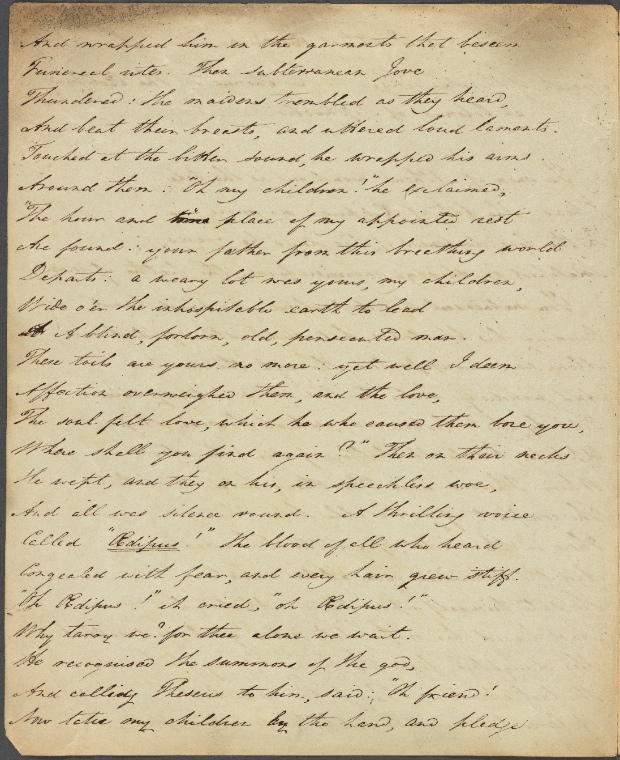 And wrapped him in the garments that beseem
Funereal rites. Then subterranean Jove
Thundered: the maidens trembled as they heard,
And beat their breasts, and uttered loud laments.
Touched at the bitter sound, he wrapped his arms
Around them: "Oh my children!" he exclaimed,
"The hour and time place of my appointed rest
Are found: your father from this breathing world
Departs: a weary lot was yours, my children,
Wide o'er the inhospitable earth to lead
A blind, forlorn, old, persecuted man.
These toils are yours no more: yet well I deem
Affection overweighed them, and the love,
The soul felt love, which he who caused them bore you,
Where shall you find again?" Then on their necks
He wept, and they on his, in speechless woe,
And all was silence round. A thrilling voice
Called "Œdipus!" the blood of all who heard
Congealed with fear, and every hair grew stiff.
"Oh Œdipus!" it cried, "oh Œdipus!"
Why tarry we? for thee alone we wait.
He recognised the summons of the god,
And calling Theseus to him, said: "Oh friend!
Now take my children by the hand, and pledge